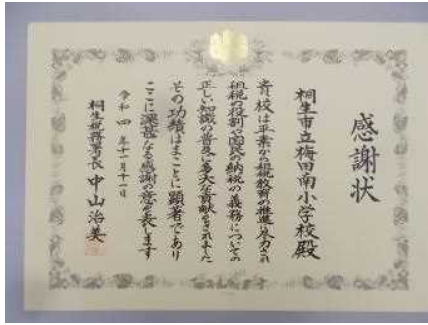 感謝状
桐生市立梅田南小学校殿
貴校は平素から租税教育の推進に尽力され
租税の役割や国民の納税の義務についての
正しい知識の普及に多大な貢献をされました
その功績はまことに顕著であり
ここに深甚なる感謝の意を表します
令和四年十一月十一日
桐生税務署長 中山治美